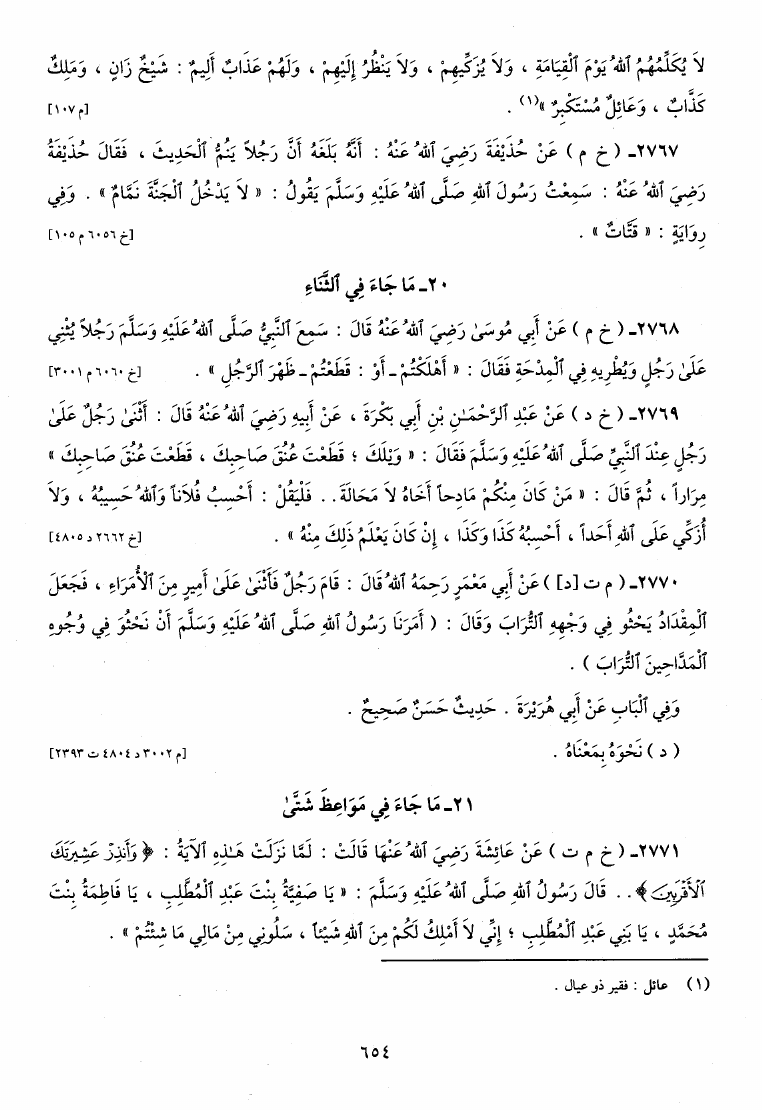 لاَ يُكَلِّمُهُمُ ٱللهُ يَوْمَ ٱلْقِيَامَةِ ، وَلاَ يُزَكِّيهِمْ ، وَلاَ يَنْظُرُ إِلَيْهِمْ ، وَلَهُمْ عَذَابٌ أَلِيمٌ : شَيْخٌ زَانٍ ، وَمَلِكٌ
كَذَّابٌ ، وَعَائِلٌ مُسْتَكْبِرٌ »(١) . [م ١٠٧]
٢٧٦٧ـ ( خ م ) عَنْ حُذَيْفَةَ رَضِيَ ٱللهُ عَنْهُ : أَنَّهُ بَلَغَهُ أَنَّ رَجُلاً يَنُمُّ ٱلْحَدِيثَ ، فَقَالَ حُذَيْفَةُ
رَضِيَ ٱللهُ عَنْهُ : سَمِعْتُ رَسُولَ ٱللهِ صَلَّى ٱللهُ عَلَيْهِ وَسَلَّمَ يَقُولُ : « لاَ يَدْخُلُ ٱلْجَنَّةَ نَمَّامٌ » . وَفِي
رِوَايَةٍ : « قَتَّاتٌ » . [خ ٦٠٥٦ م ١٠٥]
٢٠ـ مَا جَاءَ فِي ٱلثَّنَاءِ
٢٧٦٨ـ ( خ م ) عَنْ أَبِي مُوسَىٰ رَضِيَ ٱللهُ عَنْهُ قَالَ : سَمِعَ ٱلنَّبِيُّ صَلَّى ٱللهُ عَلَيْهِ وَسَلَّمَ رَجُلاً يُثْنِي
عَلَىٰ رَجُلٍ وَيُطْرِيهِ فِي ٱلْمِدْحَةِ فَقَالَ : « أَهْلَكْتُمْ ـ أَوْ : قَطَعْتُمْ ـ ظَهْرَ ٱلرَّجُلِ » . [خ ٦٠٦٠ م ٣٠٠١]
٢٧٦٩ـ ( خ د ) عَنْ عَبْدِ ٱلرَّحْمَـٰنِ بْنِ أَبِي بَكْرَةَ ، عَنْ أَبِيهِ رَضِيَ ٱللهُ عَنْهُ قَالَ : أَثْنَىٰ رَجُلٌ عَلَىٰ
رَجُلٍ عِنْدَ ٱلنَّبِيِّ صَلَّى ٱللهُ عَلَيْهِ وَسَلَّمَ فَقَالَ : « وَيْلَكَ ؛ قَطَعْتَ عُنُقَ صَاحِبِكَ ، قَطَعْتَ عُنُقَ صَاحِبِكَ »
مِرَاراً ، ثُمَّ قَالَ : « مَنْ كَانَ مِنْكُمْ مَادِحاً أَخَاهُ لاَ مَحَالَةَ . . فَلْيَقُلْ : أَحْسِبُ فُلاَناً وَٱللهُ حَسِيبُهُ ، وَلاَ
أُزَكِّي عَلَى ٱللهِ أَحَداً ، أَحْسِبُهُ كَذَا وَكَذَا ، إِنْ كَانَ يَعْلَمُ ذَلِكَ مِنْهُ » . [خ ٢٦٦٢ د ٤٨٠٥]
٢٧٧٠ـ ( م ت [د] ) عَنْ أَبِي مَعْمَرٍ رَحِمَهُ ٱللهُ قَالَ : قَامَ رَجُلٌ فَأَثْنَىٰ عَلَىٰ أَمِيرٍ مِنَ ٱلأُمَرَاءِ ، فَجَعَلَ
ٱلْمِقْدَادُ يَحْثُو فِي وَجْهِهِ ٱلتُّرَابَ وَقَالَ : ( أَمَرَنَا رَسُولُ ٱللهِ صَلَّى ٱللهُ عَلَيْهِ وَسَلَّمَ أَنْ نَحْثُوَ فِي وُجُوهِ
ٱلْمَدَّاحِينَ ٱلتُّرَابَ ) .
وَفِي ٱلْبَابِ عَنْ أَبِي هُرَيْرَةَ . حَدِيثٌ حَسَنٌ صَحِيحٌ .
( د ) نَحْوَهُ بِمَعْنَاهُ . [م ٣٠٠٢ د ٤٨٠٤ ت ٢٣٩٣]
٢١ـ مَا جَاءَ فِي مَوَاعِظَ شَتَّىٰ
٢٧٧١ـ ( خ م ت ) عَنْ عَائِشَةَ رَضِيَ ٱللهُ عَنْهَا قَالَتْ : لَمَّا نَزَلَتْ هَـٰذِهِ ٱلآيَةُ : ﴿ وَأَنذِرْ عَشِيرَتَكَ
ٱلْأَقْرَبِينَ ﴾ . . قَالَ رَسُولُ ٱللهِ صَلَّى ٱللهُ عَلَيْهِ وَسَلَّمَ : « يَا صَفِيَّةُ بِنْتَ عَبْدِ ٱلْمُطَّلِبِ ، يَا فَاطِمَةُ بِنْتَ
مُحَمَّدٍ ، يَا بَنِي عَبْدِ ٱلْمُطَّلِبِ ؛ إِنِّي لاَ أَمْلِكُ لَكُمْ مِنَ ٱللهِ شَيْئاً ، سَلُونِي مِنْ مَالِي مَا شِئْتُمْ » .
(١) عائل : فقير ذو عيال .
٦٥٤